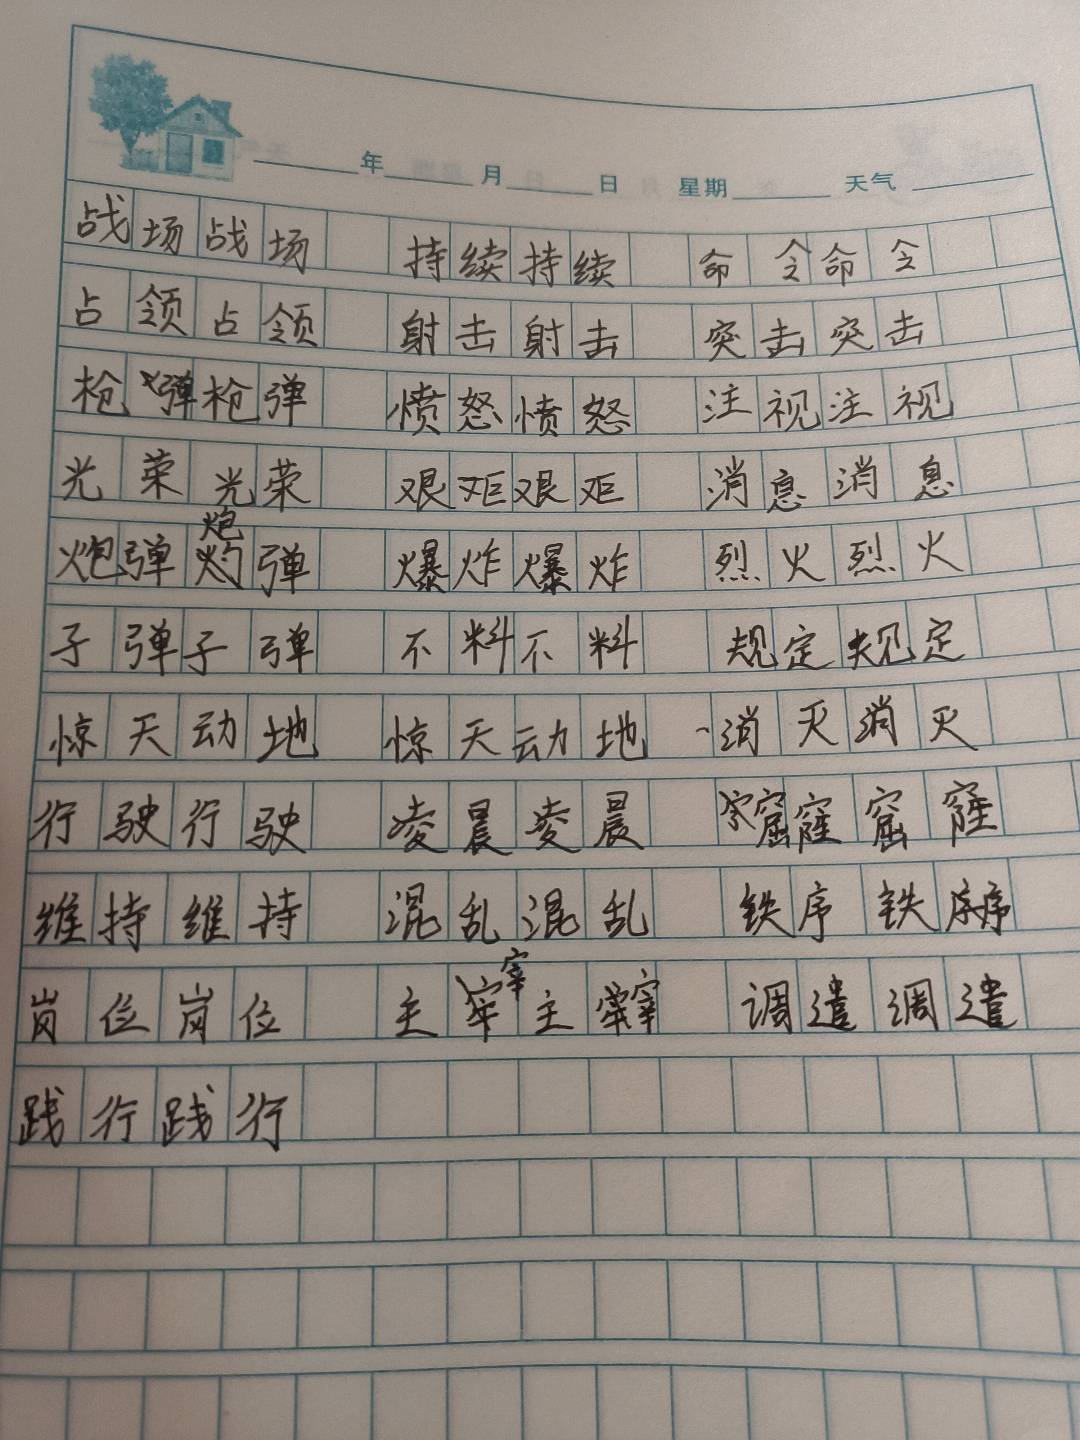 年 月 日 星期 天气
战场战场 持续持续 命令命令
占领占领 射击射击 突击突击
枪弹枪弹 愤怒愤怒 注视注视
光荣光荣 艰难艰难 消息消息
炮弹炮弹 爆炸爆炸 烈火烈火
子弹子弹 不料不料 规定规定
惊天动地 惊天动地 消灭消灭
行驶行驶 凌晨凌晨 窟窿窟窿
维持维持 混乱混乱 铁序铁序
岗位岗位 主宰主宰 调遣调遣
践行践行